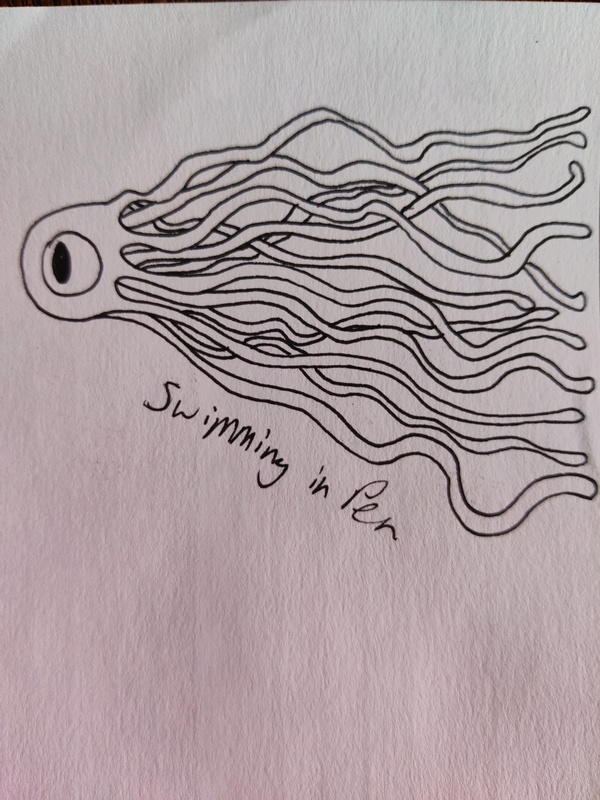 Swimming in Pen